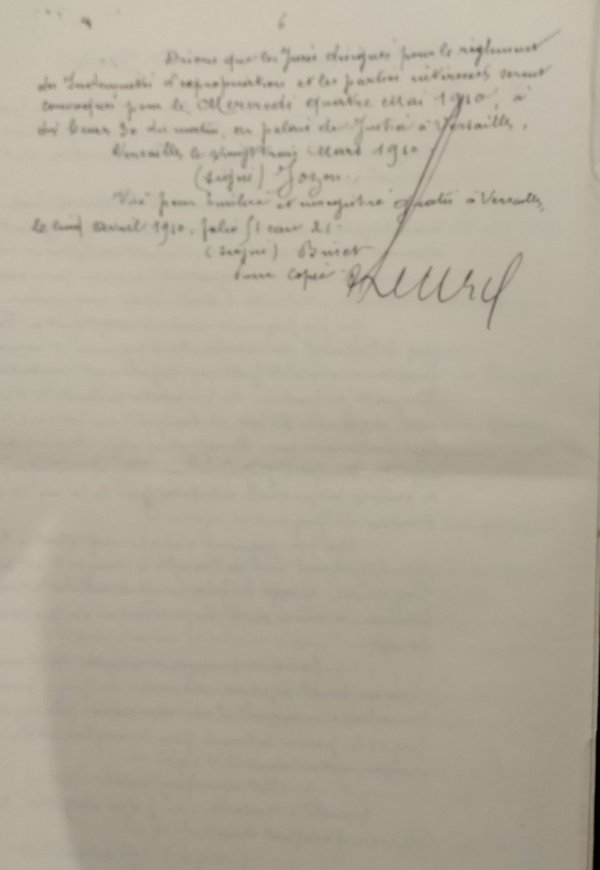 6
Disons que les Jurés désignés pour le règlement
des Indemnités d'expropriation et les parties intéressées seront
convoqués pour le Mercredi quatre Mai 1910, à
dix heures 30 du matin, au palais de Justice à Versailles.
Versailles, le vingt trois Mars 1910.
(signé)
Visé pour timbre et enregistré gratis à Versailles,
le avril 1910, folio 51 case 21.
(signé) Binet
Pour Copie